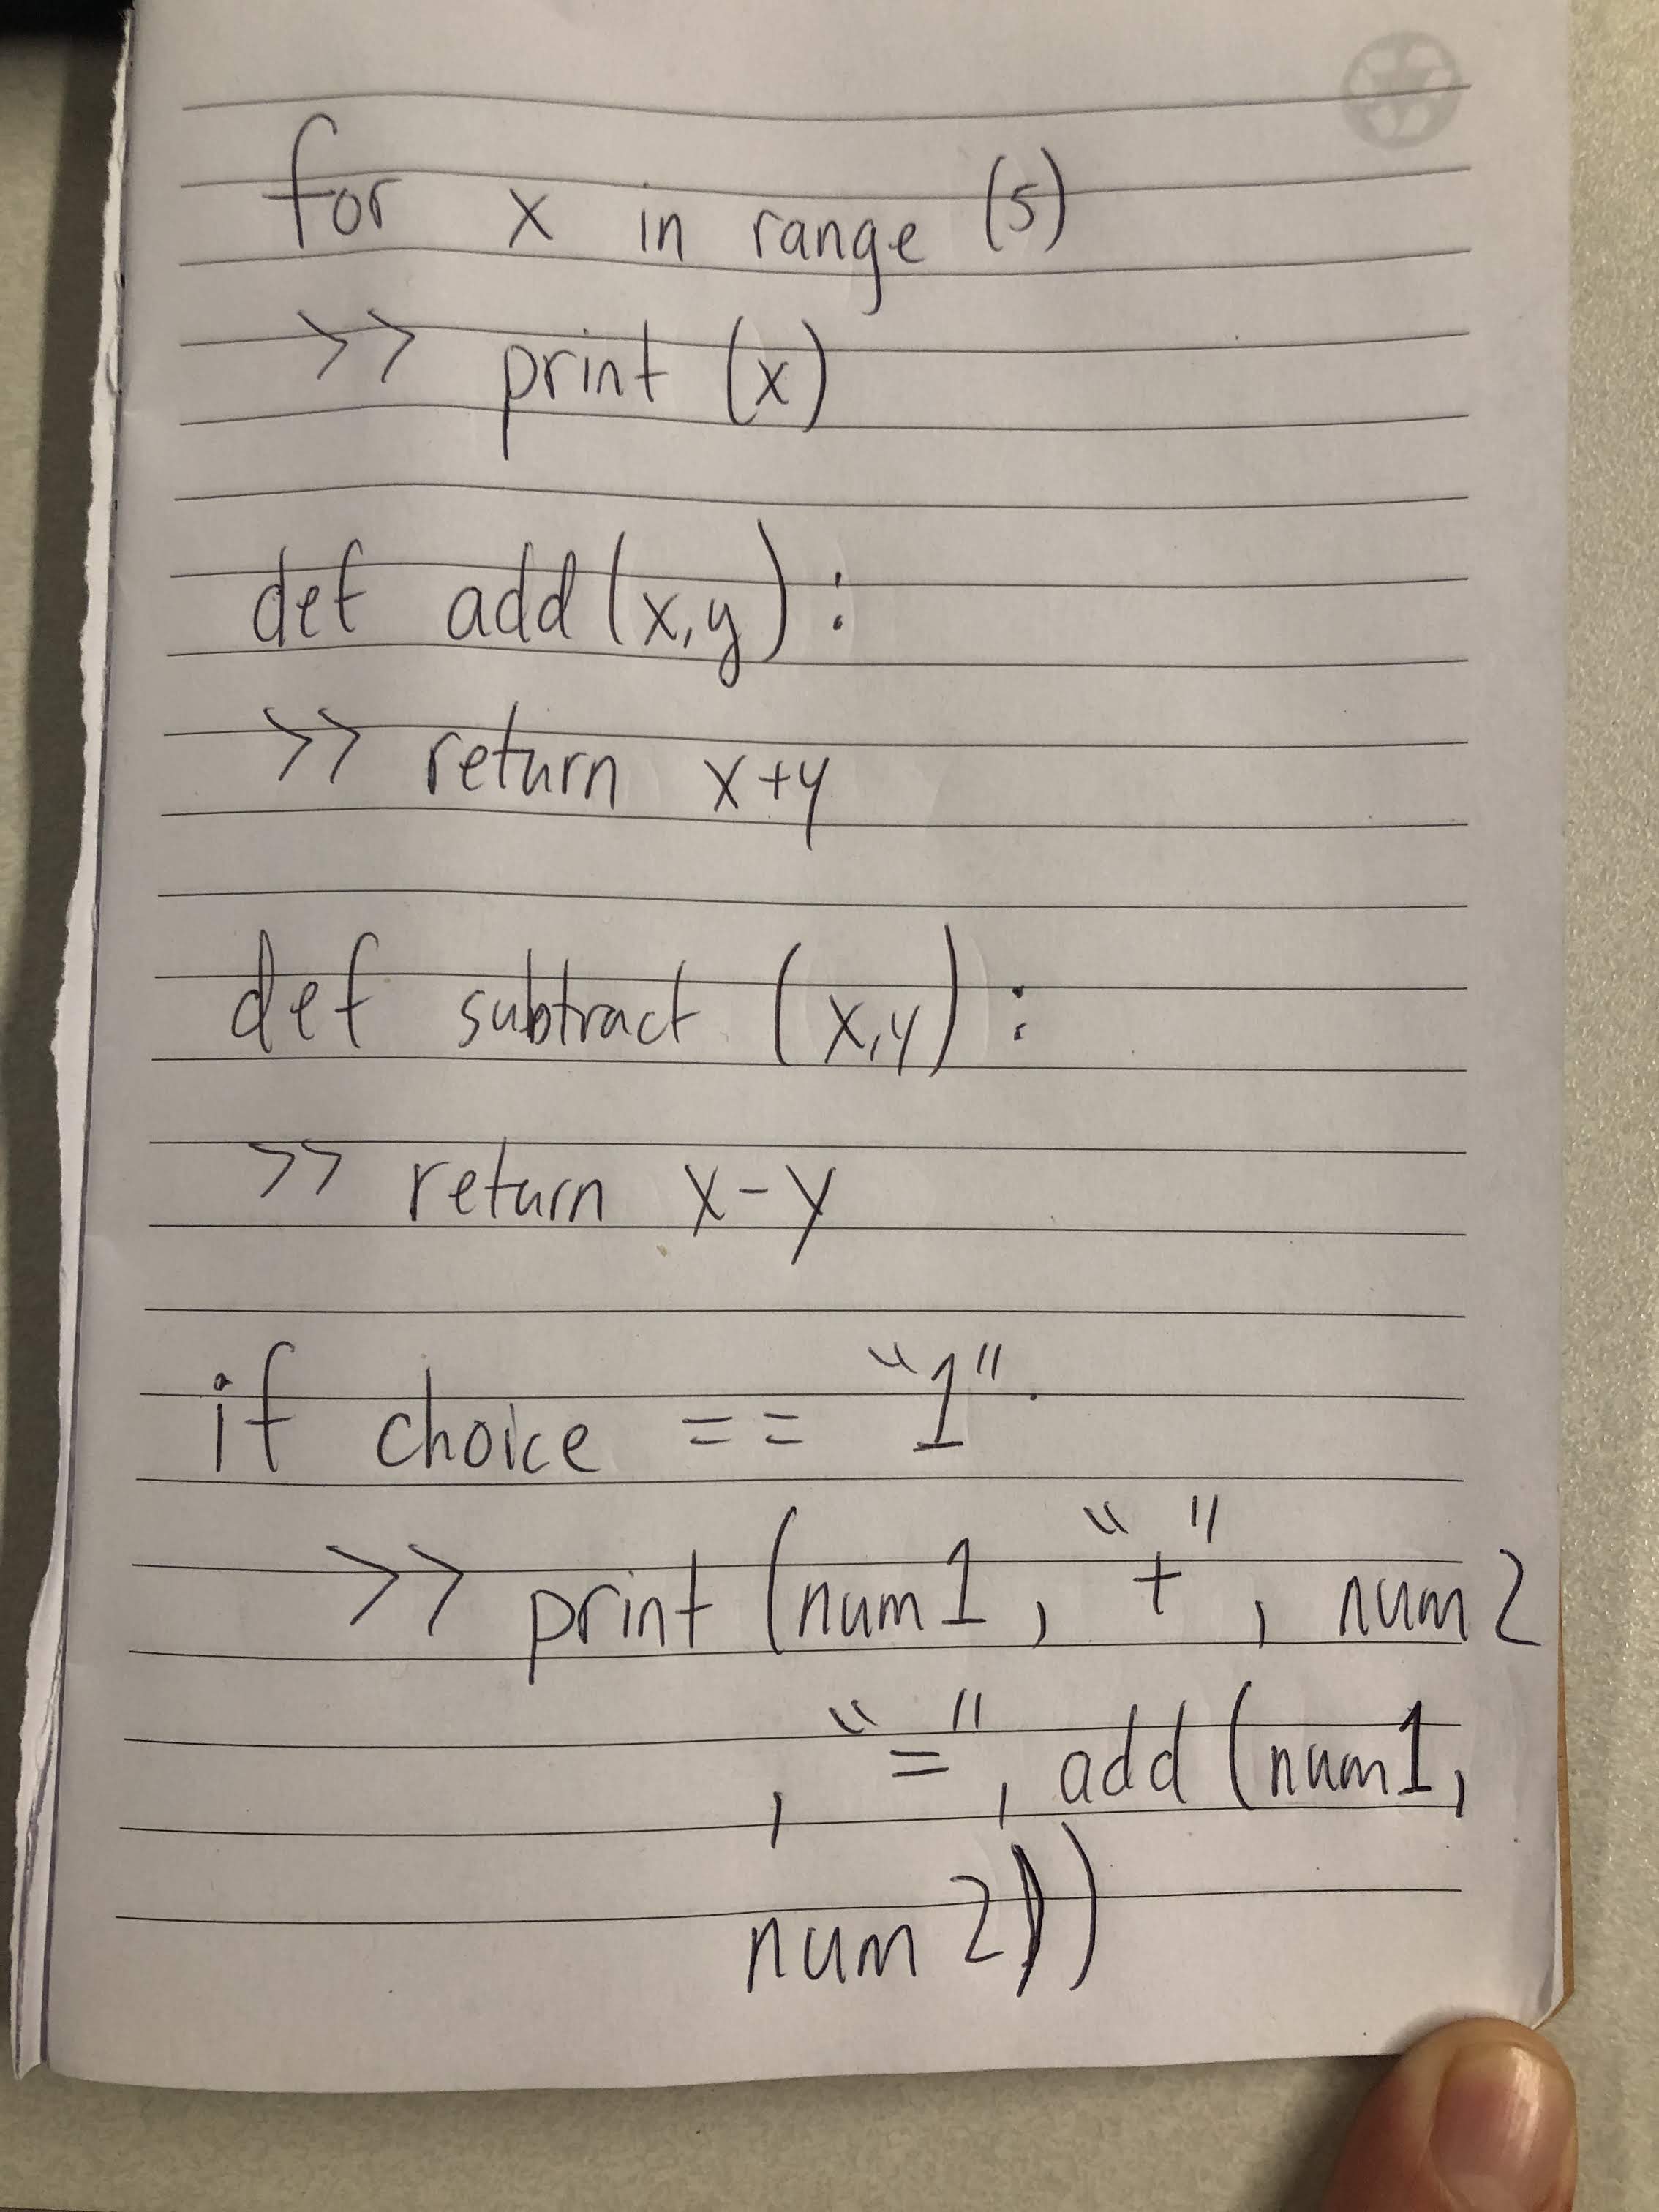 for x in range (5)
>> print (x)
def add (x,y) :
>> return x+y
def subtract (x,y) :
>> return x-y
if choice == "1".
>> print (num1, "+", num2
, "=", add (num1,
num2))